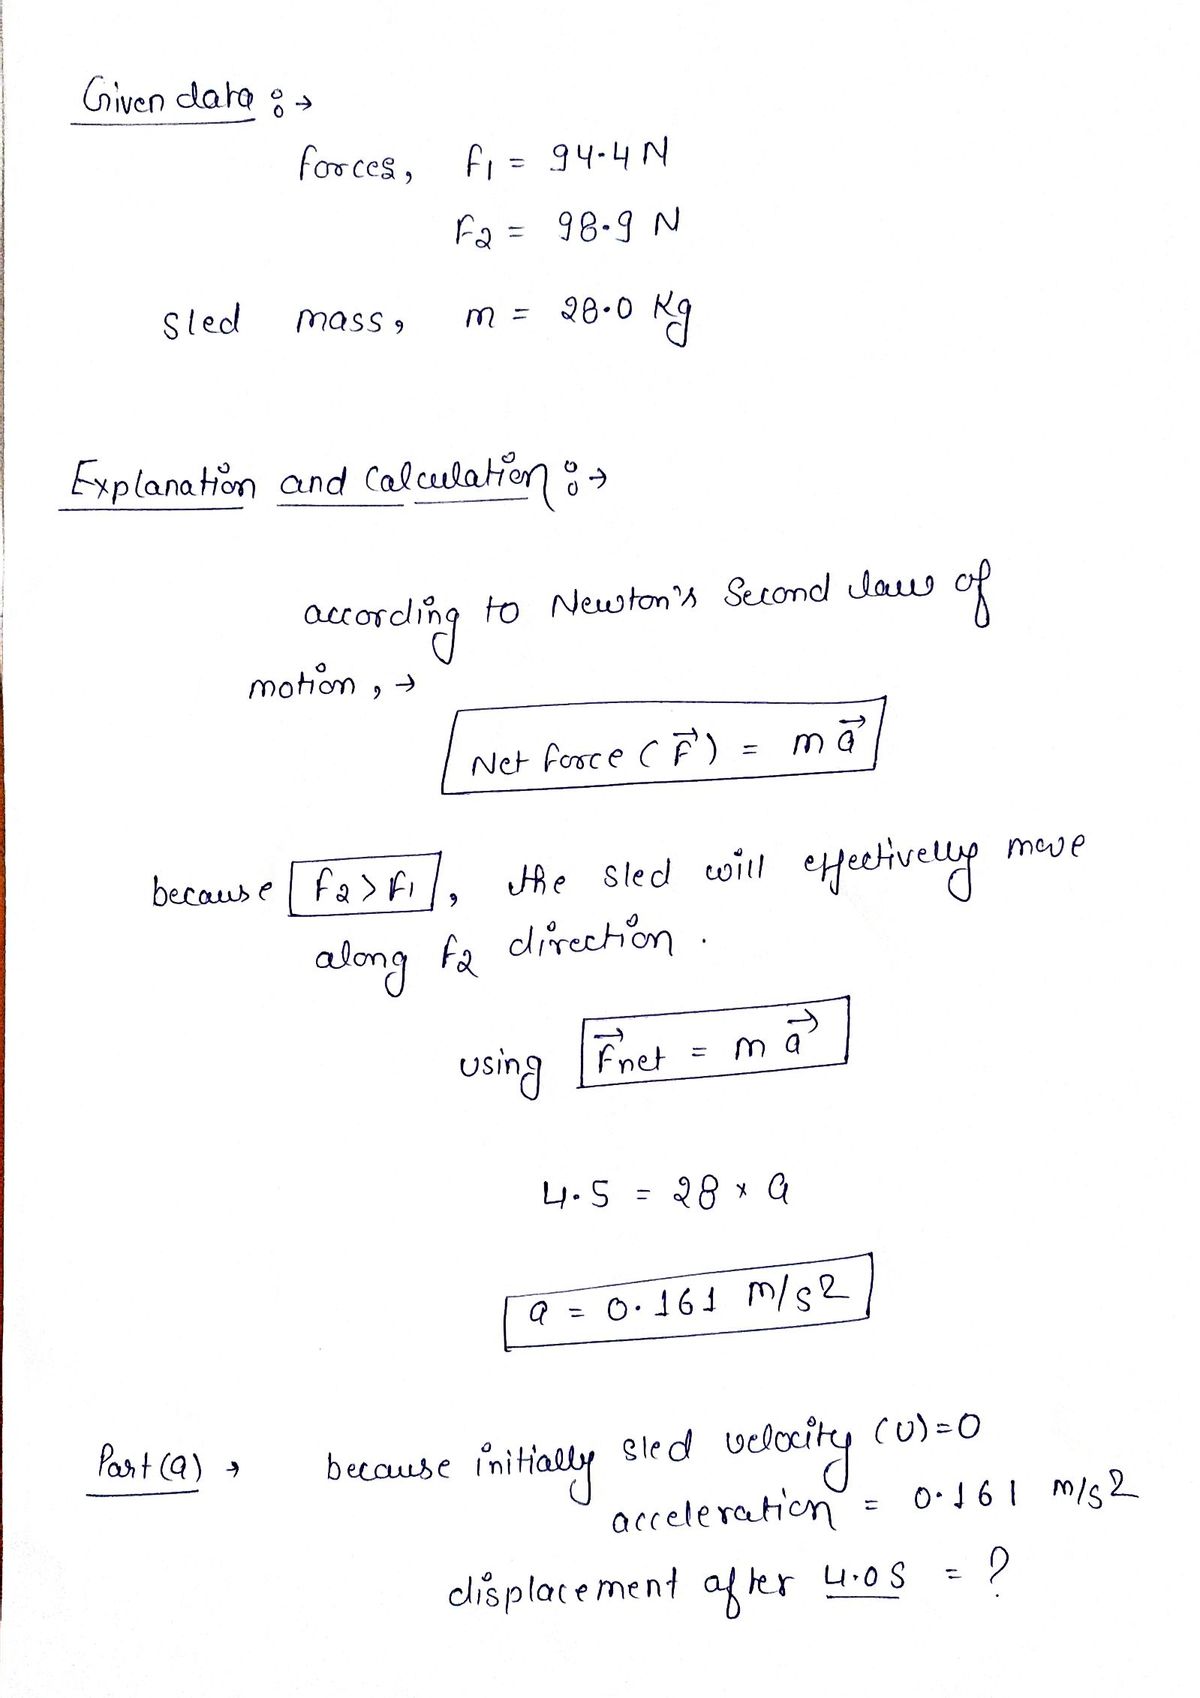 Given data :→
forces, F1 = 94.4 N
F2 = 98.9 N
sled mass, m = 28.0 Kg
Explanation and Calculation :→
according to Newton's Second law of
motion, →
Net force (F⃗) = m a⃗
because F2 > F1, the sled will effectively move
along F2 direction.
using F⃗net = m a⃗
4.5 = 28 × a
a = 0.161 m/s2
Part (a) → because initially sled velocity (U) = 0
acceleration = 0.161 m/s2
displacement after 4.0 S = ?